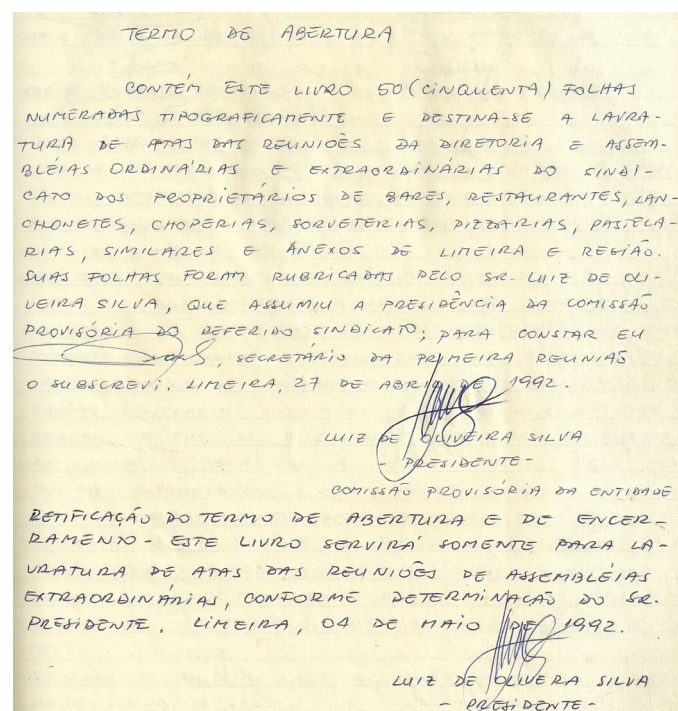 TERMO DE ABERTURA
CONTÉM ESTE LIVRO 50 (CINQUENTA) FOLHAS
NUMERADAS TIPOGRAFICAMENTE E DESTINA-SE A LAVRA-
TURA DE ATAS DAS REUNIÕES DA DIRETORIA E ASSEM-
BLÉIAS ORDINÁRIAS E EXTRAORDINÁRIAS DO SINDI-
CATO DOS PROPRIETÁRIOS DE BARES, RESTAURANTES, LAN-
CHONETES, CHOPERIAS, SORVETERIAS, PIZZARIAS, PASTELA-
RIAS, SIMILARES E ANEXOS DE LIMEIRA E REGIÃO.
SUAS FOLHAS FORAM RUBRICADAS PELO SR. LUIZ DE OLI-
VEIRA SILVA, QUE ASSUMIU A PRESIDÊNCIA DA COMISSÃO
PROVISÓRIA DO REFERIDO SINDICATO; PARA CONSTAR EU
, SECRETÁRIO DA PRIMEIRA REUNIÃO
O SUBSCREVI. LIMEIRA, 27 DE ABRIL DE 1992.
LUIZ DE OLIVEIRA SILVA
- PRESIDENTE -
COMISSÃO PROVISÓRIA DA ENTIDADE
RETIFICAÇÃO DO TERMO DE ABERTURA E DE ENCER-
RAMENTO - ESTE LIVRO SERVIRÁ SOMENTE PARA LA-
VRATURA DE ATAS DAS REUNIÕES DE ASSEMBLÉIAS
EXTRAORDINÁRIAS, CONFORME DETERMINAÇÃO DO SR.
PRESIDENTE. LIMEIRA, 04 DE MAIO DE 1992.
LUIZ DE OLIVEIRA SILVA
- PRESIDENTE -